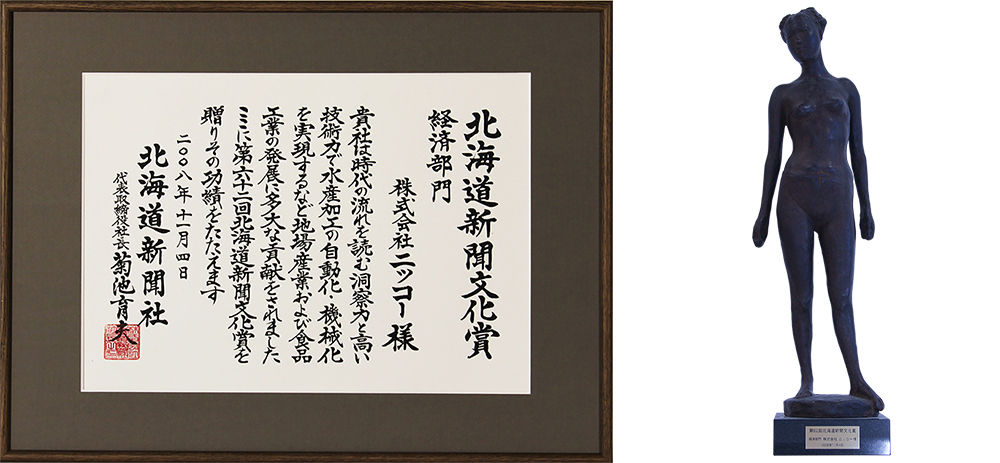 北海道新聞文化賞
経済部門
株式会社ニッコー様
貴社は時代の流れを読む洞察力と高い
技術力で水産加工の自動化・機械化
を実現するなど地場産業および食品
工業の発展に多大な貢献をされました
ここに第六十二回北海道新聞文化賞を
贈りその功績をたたえます
二〇〇八年十一月四日
北海道新聞社
代表取締役社長 菊池育夫
第62回北海道新聞文化賞
経済部門 株式会社 ニッコー 様